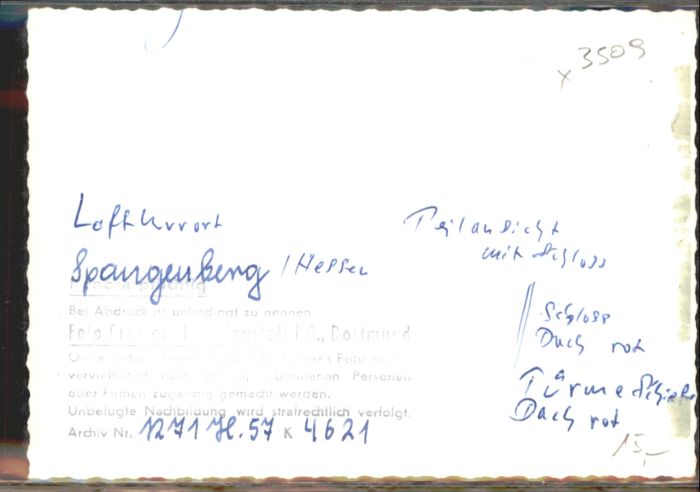 x 3509
Luftkurort
Spangenberg /Hessen
Teilansicht
mit Schloss
Schloss
Dach rot
Türme Schiefer
Dach rot
15,-
Bei Abdruck ist unbedingt zu nennen
Foto KG., Dortmund
Ohne dieses Foto
vervielfältigt noch Personen
oder Firmen zugängig gemacht werden.
Unbefugte Nachbildung wird strafrechtlich verfolgt.
Archiv Nr. 1271 H.57 K 4621